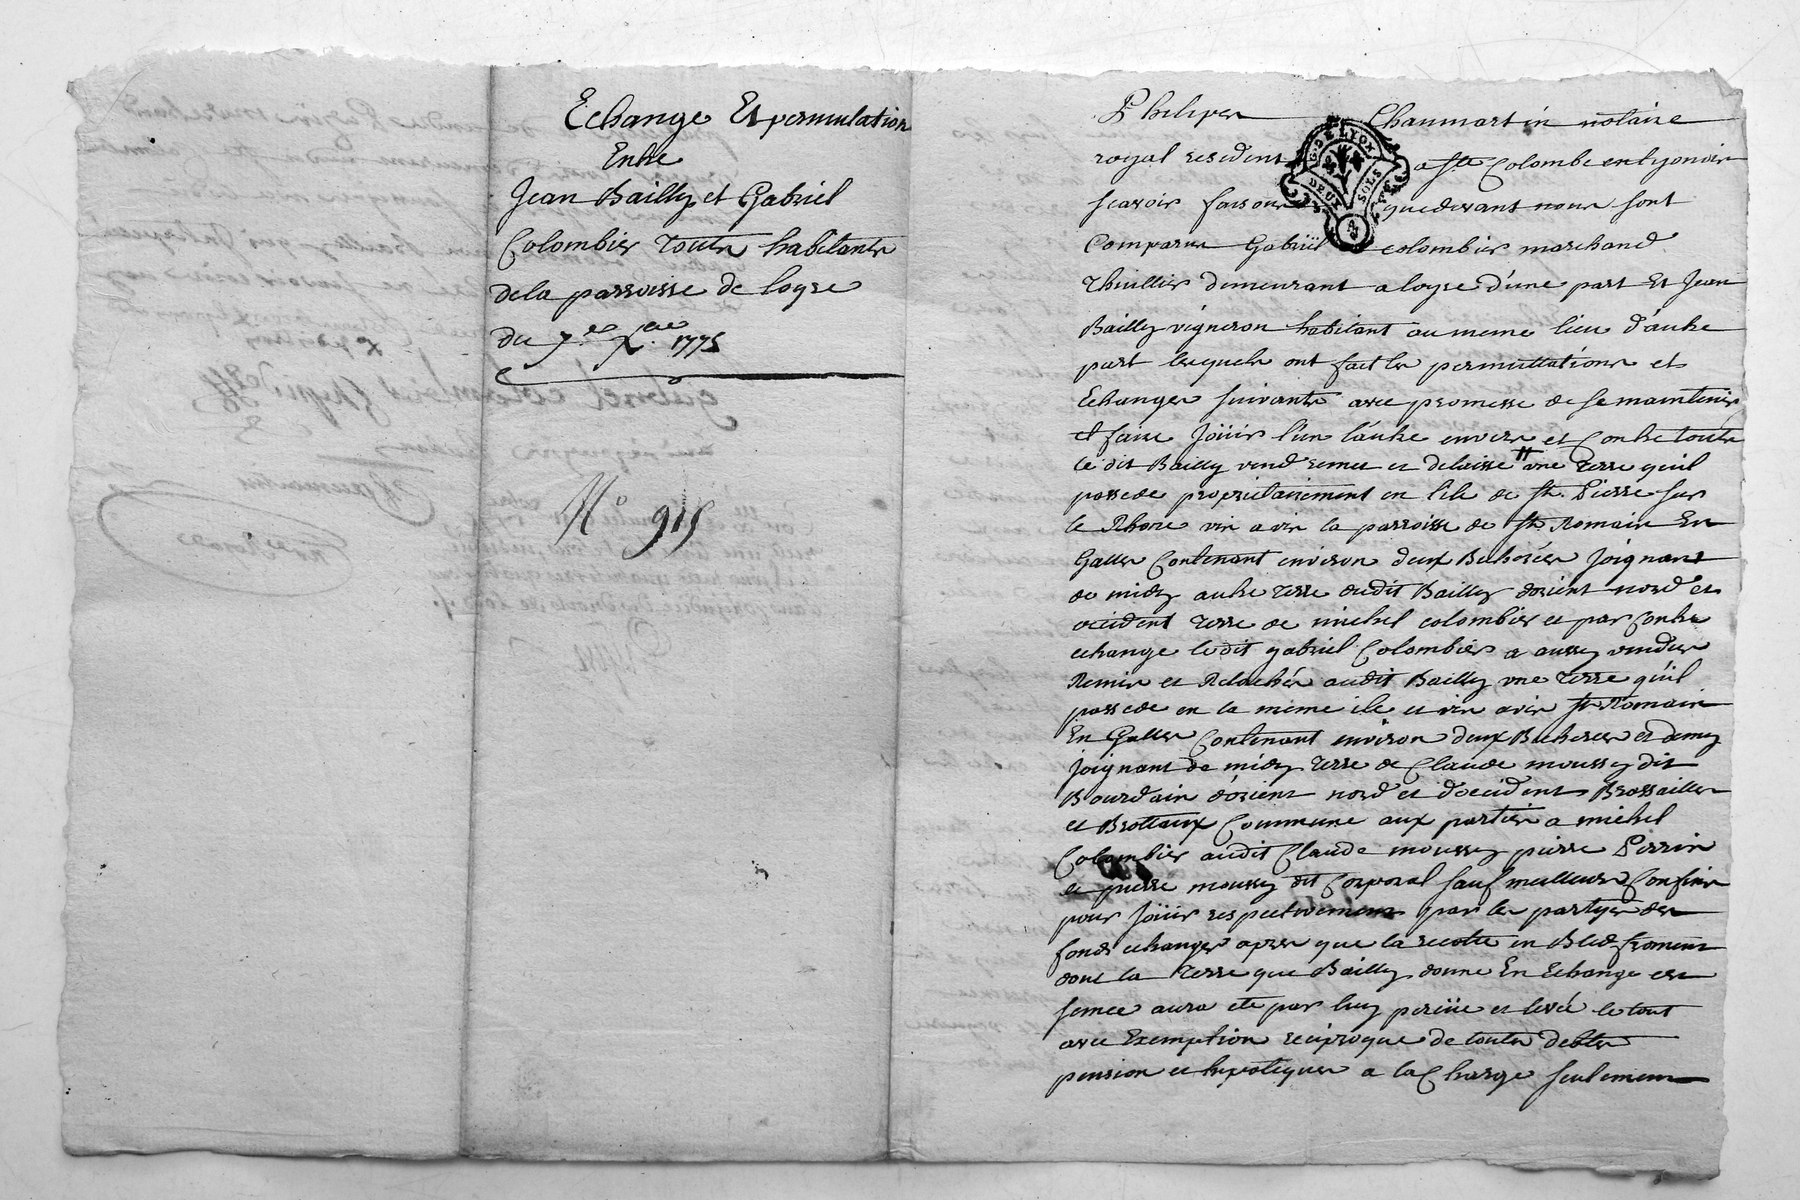 Echange Et permutation
Entre
Jean Bailly et Gabriel
Colombier Touts habitants
de la parroisse de loyre
du 7.e Xbre 1775
N.o 915
Philipes Chaumartin notaire
royal resident a Ste Colombe en lyonois
scavoir faisons que devant nous sont
Comparus Gabriel colombier marchand
Thuillier demeurant a loyre d'une part Et Jean
Bailly vigneron habitant au meme lieu d'autre
part lesquels ont fait les permuttations et
Echanges suivants avec promesse de se maintenir
et faire Joüir l'un l'autre envers et Contre touts
le dit Bailly vend remet et delaisse une Terre qu'il
possede proprietairement en l'ile de St. Pierre sur
le Rhone vis a vis la parroisse de St Romain En
Galles Contenant environ deux Bicherées Joignant
de midy autre terre dudit Bailly d'orient nord et
occident terre de michel colombier et par Contre
echange ledit gabriel Colombier a aussy vendus
Remis et Relachés audit Bailly une Terre qu'il
possede en la même ile et vis a vis St Romain
En Galles Contenant environ deux Bicherées et demy
joignant de midy terre de Claude moussy dit
Bourdain d'orient nord et d'occident Brossailles
et Brottaux Commune aux parties a michel
Colombier audit Claude moussy pierre Perrin
et pierre moussy dit Corporal sauf meilleurs Confins
pour Joüir respectivement par les partyes des
fonds echangés apres que la recolte en Bled froment
dont la Terre que Bailly donne En Echange est
semée aura ete par luy perçüe et levée le tout
avec Exemption reciproque de touts debtes
pension et hipoteques a la Charge seulement
G. DE LYON
DEUX SOLS